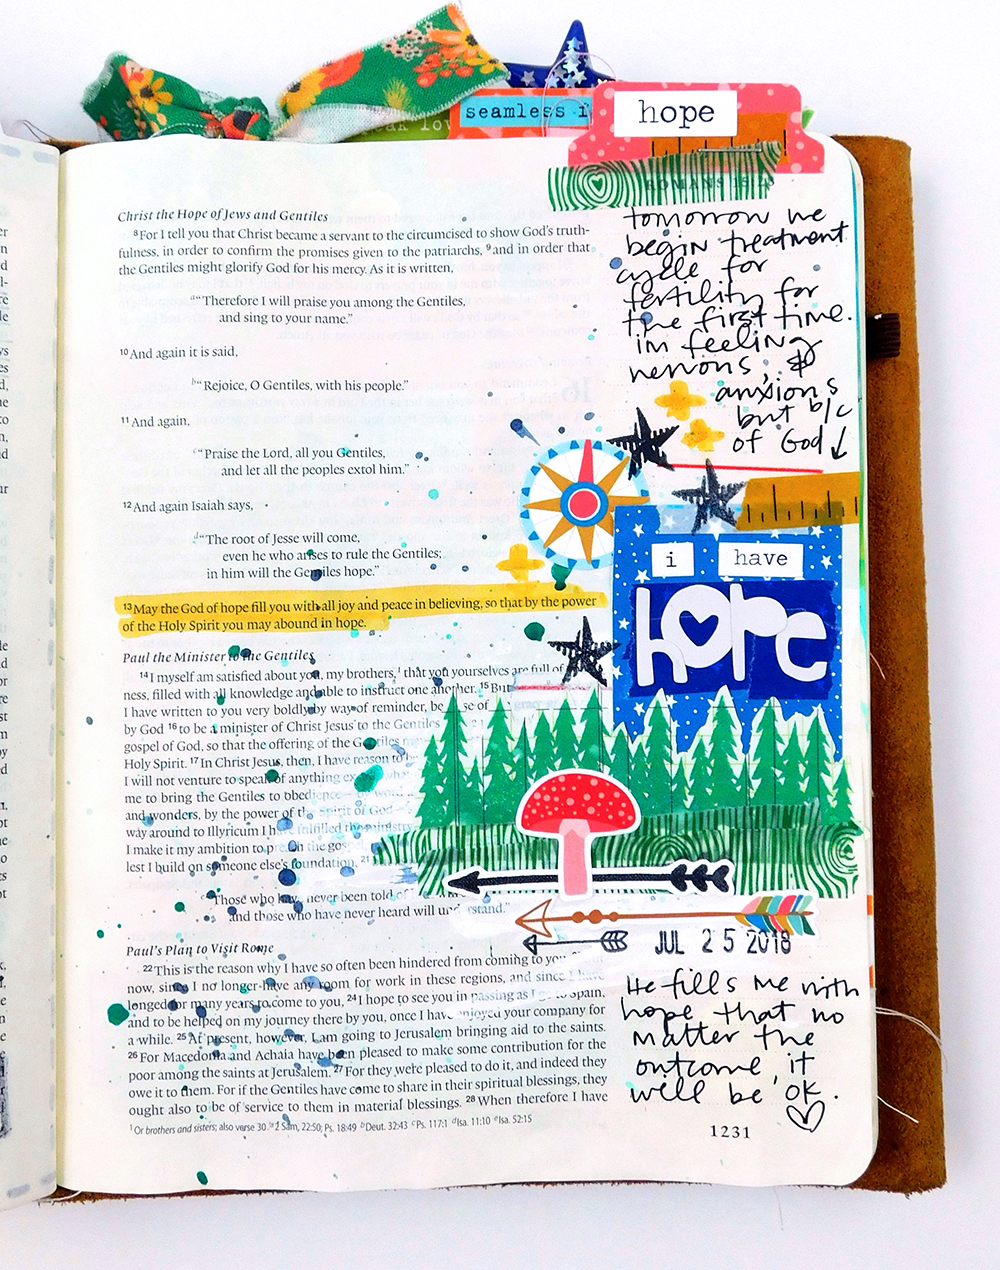 seamless
hope
ROMANS
tomorrow we
begin treatment
cycle for
fertility for
the first time.
im feeling
nervous, &
anxious
but b/c
of God ↓
i have
hope
JUL 25 2018
He fills me with
hope that no
matter the
outcome, it
will be ok.
Christ the Hope of Jews and Gentiles
8For I tell you that Christ became a servant to the circumcised to show God's truth-
fulness, in order to confirm the promises given to the patriarchs, 9and in order that
the Gentiles might glorify God for his mercy. As it is written,
d"Therefore I will praise you among the Gentiles,
and sing to your name."
10And again it is said,
b"Rejoice, O Gentiles, with his people."
11And again,
c"Praise the Lord, all you Gentiles,
and let all the peoples extol him."
12And again Isaiah says,
d"The root of Jesse will come,
even he who arises to rule the Gentiles;
in him will the Gentiles hope."
13May the God of hope fill you with all joy and peace in believing, so that by the power
of the Holy Spirit you may abound in hope.
Paul the Minister to the Gentiles
14I myself am satisfied about you, my brothers,1 that you yourselves are full of
ness, filled with all knowledge and able to instruct one another. 15But
I have written to you very boldly by way of reminder, of
by God 16to be a minister of Christ Jesus to the Gentiles
gospel of God, so that the offering of the Gentiles
Holy Spirit. 17In Christ Jesus, then, I have reason to
I will not venture to speak of anything what
me to bring the Gentiles to obedience—by word
and wonders, by the power of the Spirit of God
way around to Illyricum I have fulfilled the ministry
I make it my ambition to preach the gospel,
lest I build on someone else's foundation, 21
"Those who have never been told of
and those who have never heard will understand."
Paul's Plan to Visit Rome
22This is the reason why I have so often been hindered from coming to you.
now, since I no longer have any room for work in these regions, and since I have
longed for many years to come to you, 24I hope to see you in passing as I go to Spain,
and to be helped on my journey there by you, once I have enjoyed your company for
a while. 25At present, however, I am going to Jerusalem bringing aid to the saints.
26For Macedonia and Achaia have been pleased to make some contribution for the
poor among the saints at Jerusalem. 27For they were pleased to do it, and indeed they
owe it to them. For if the Gentiles have come to share in their spiritual blessings, they
ought also to be of service to them in material blessings. 28When therefore I have
1Or brothers and sisters; also verse 30. a2 Sam. 22:50; Ps. 18:49 bDeut. 32:43 cPs. 117:1 dIsa. 11:10 eIsa. 52:15
1231